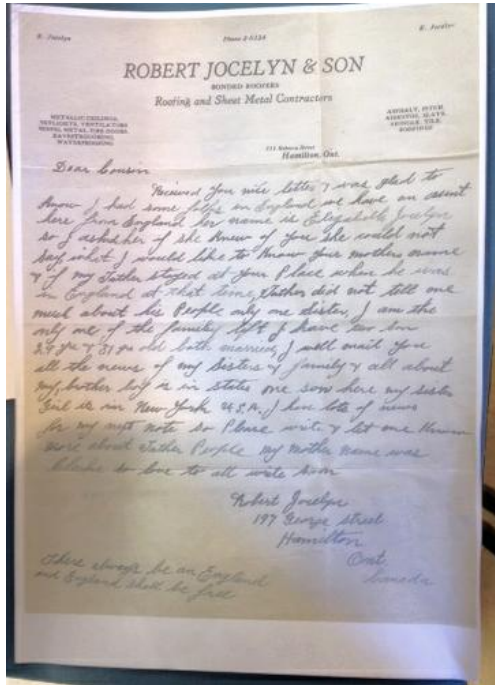 R. Jocelyn
Phone 2-0324
R. Jocelyn
ROBERT JOCELYN & SON
BONDED ROOFERS
Roofing and Sheet Metal Contractors
METALLIC CEILINGS,
SKYLIGHTS, VENTILATORS
METAL, FIRE DOORS,
EAVESTROUGHING,
WATERPROOFING
ASPHALT, PITCH
ASBESTOS, SLATE,
TILE,
ROOFINGS
Street
Hamilton, Ont.
Dear Cousin
Received you nice letter & was glad to
know I had some folks in England we have an
here from England her name is Jocelyn
so I asked her if she knew of you she could not
say what I would like to know your mothers name
& if my Father stayed at your Place when he was
in England at that time, Father did not tell one
much about his People only one Sister, I am the
only one of the family left I have two son
29 yrs & 31 yrs old both married, I will mail you
all the news of my Sisters & family & all about
my brother boy is in States one son here my sister
Girl is in New York U.S.A. I have lots of news
for my next note so Please write & let one know
more about Father People my mother name was
so love to all write soon
Robert Jocelyn
197 George street
Hamilton
Ont.
Canada
There always be an England
and England shall be free